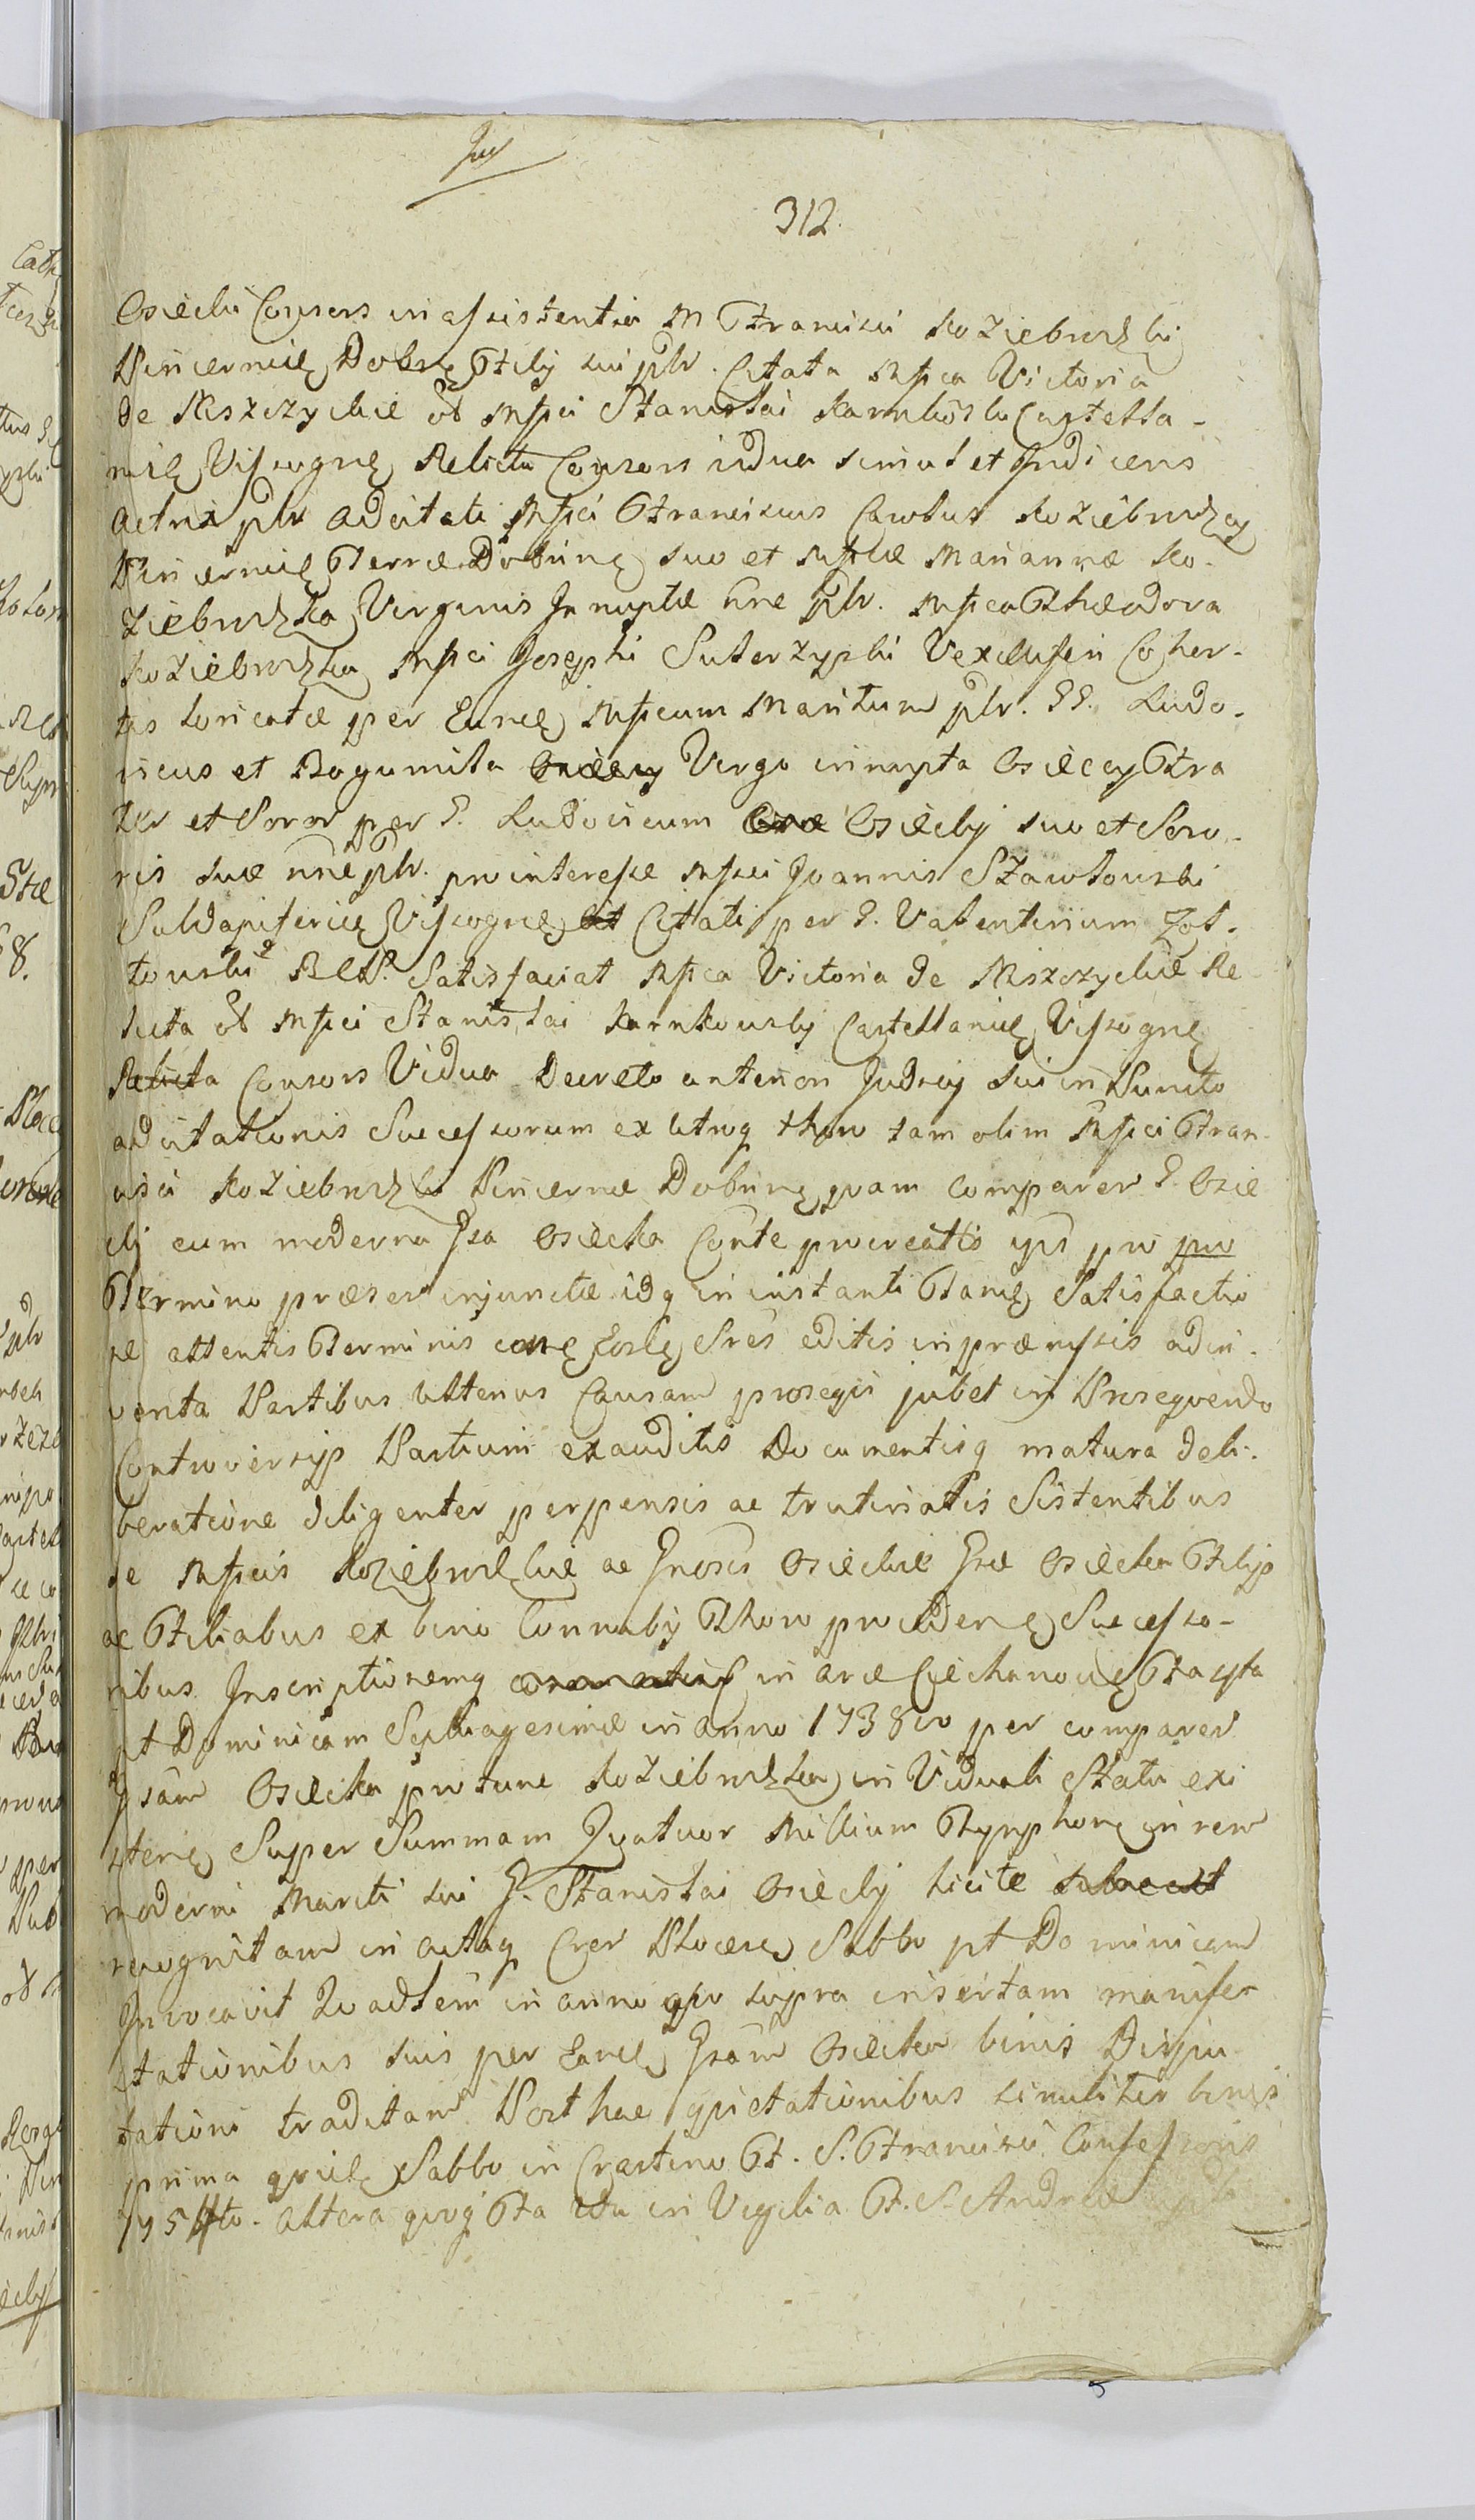 312.
Osiecki Consors in assistentia M Francisci Koziebrodzki
Pincernię Dobrę Filij sui plr. Citata Mfica Victoria
de Mszczyckie ol Mfici Stanislai Karnkoski Castella-
nię Vissogrę Relicta Consors vidua simul et Indicens
Actrix plr adcitati Mfici Franciscus Carolus Koziebrodzcy
Pincernię Terræ Dobrinę suo et Mficæ Mariannæ Ko-
ziebrodzka Virginis Innuptæ nne plr. Mfica Theodora
Koziebrodzka Mfici Josephi Suterzyski Vexilliferi Coher-
tis Loricatæ per Eundę Mficum Maritum plr. GG. Ludo-
vicus et Bogumila Virgo innupta Osieccy Fra
ter et Soror per G. Ludovicum Osiecki suo et Soro-
ris suæ nne plr. pro interesse Mfici Joannis Szawlouski
Subdapiferię Vissogrę Citati per G. Valentinum Zol-
touski Satisfaciat Mfica Victoria de Mszczyckie Re
licta ol Mfici Stanislai Karnkouski Castellanię Vissogrę
Consors Vidua Decreto anteriori Judicij sui in Puncto
adcitationis Successorum ex utroq thoro tam olim Mfici Fran-
cisci Koziebrodzki Pincernæ Dobrinę quam comparen G. Osie
cki cum moderna Gsa Osiecka Conte procreatis ipis pro pro
Termino præsen injunctæ idq in instanti Parię Satisfactio
ne attentis Terminis editis in præmissis adin-
venta Partibus ulterius Causam prosequi jubet in Prosequendo
Controversijs Partium exauditis Documentisq matura deli-
beratione diligenter perpensis ac trutinatis Sistentibus
se Mficis Koziebrodzkie ac Gnosis Osieckie Gsæ Osiecka Filijs
ac Filiabus ex bino Connubij Thoro procedenę Successo-
ribus Inscriptionemq in Arce Ciechanovię
pt Dominicam Septuagesimæ in anno 1738vo per comparen
Gsam Osiecka protunc Koziebrodzka in Viduali Statu exi
stenę Super Summam Quatuor Millium Tynphorę in rem
moderni Mariti sui G. Stanislai Osiecki licite
recognitam in Actaq Cren Plocenę Sabbo pt Dominicam
Invocavit Quadlem in anno qvo supra insertam manifes
tationibus suis per Eandę Gsam Osiecka binis Dispu
tationi traditam Post hac quietationibus similiter binis
prima qvidę Sabbo in Crastino Ft. S. Francisci Confessoris
altera qvoq Fa in Vigilia Ft. S. Andreæ